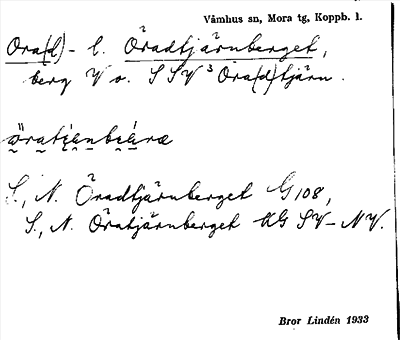 Våmhus sn, Mora tg, Koppb. l.
Öra(d)- l. Öradtjärnberget,
berg V o. SSV ³ Öra(d)tjärn.
S., N. Öradtjärnberget G 108,
S., N. Öratjärnberget KG SV-NV.
Bror Lindén 1933